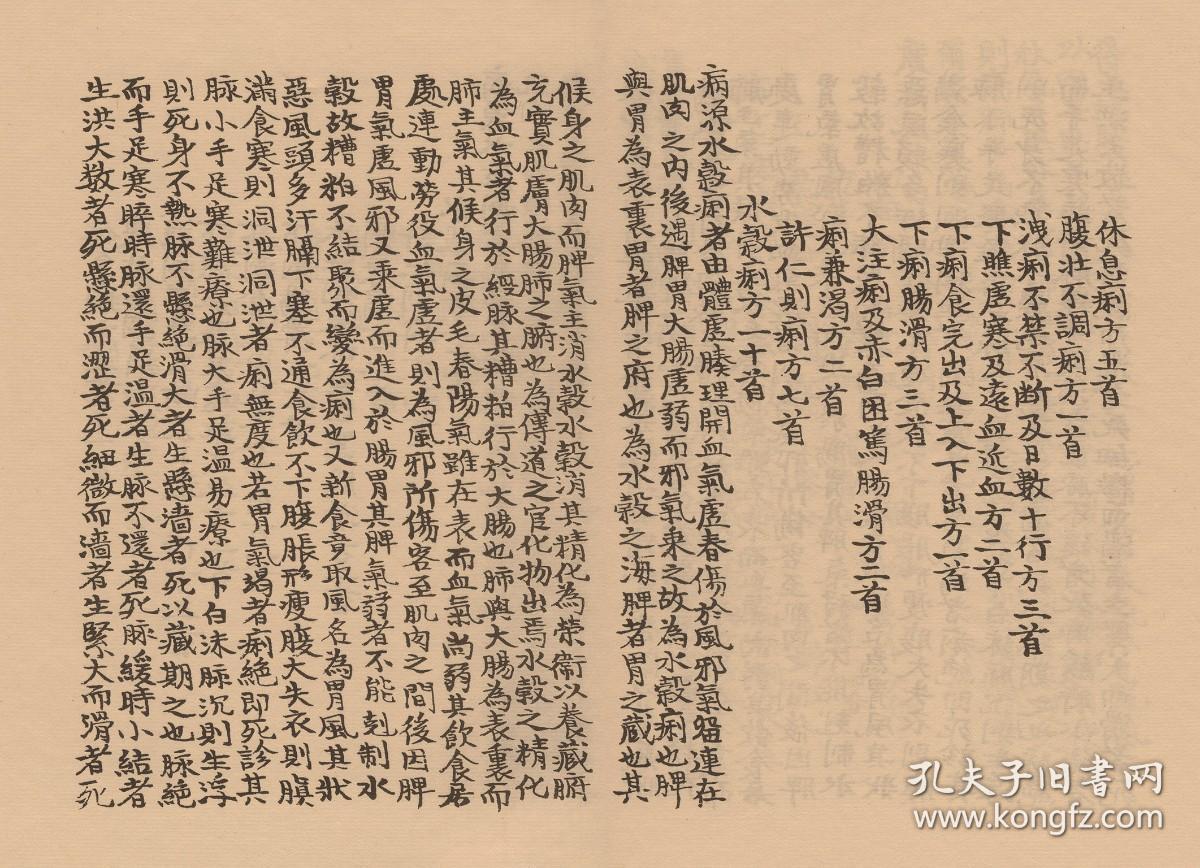 休息痢方五首
腹壮不調痢方一首
洩痢不禁不断及日數十行方三首
下瞧虛寒及遠血近血方二首
下痢食完出及上入下出方一首
下痢腸滑方三首
大注痢及赤白困篤腸滑方二首
痢兼渴方二首
許仁則痢方七首
水穀痢方一十首
病源水穀痢者由體虛腠理開血氣虛春傷於風邪氣留連在
肌肉之内後遇脾胃大腸虛弱而邪氣乘之故為水穀痢也脾
與胃為表裏胃者脾之府也為水穀之海脾者胃之藏也其
候身之肌肉而脾氣主消水穀水穀消其精化為榮衞以養藏腑
充實肌膚大腸肺之腑也為傳道之官化物出焉水穀之精化
為血氣者行於經脉其糟粕行於大腸也肺與大腸為表裏而
肺主氣其候身之皮毛春陽氣雖在表而血氣尚弱其飲食居
處連動勞役血氣虛者則為風邪所傷客至肌肉之間後因脾
胃氣虛風邪又乘虛而進入於腸胃其脾氣弱者不能尅制水
穀故糟粕不結聚而變為痢也又新食竟取風名為胃風其狀
惡風頭多汗膈下塞不通食飲不下腹脹形瘦腹大失衣則䐜
滿食寒則洞泄洞泄者痢無度也若胃氣竭者痢絕即死診其
脉小手足寒難療也脉大手足温易療也下白沫脉沉則生浮
則死身不熱脉不懸絕滑大者生懸濇者死以藏期之也脉絕
而手足寒晬時脉還手足温者生脉不還者死脉緩時小結者
生洪大数者死懸絕而澀者死細微而濇者生緊大而滑者死
孔夫子旧書网
www.kongfz.com